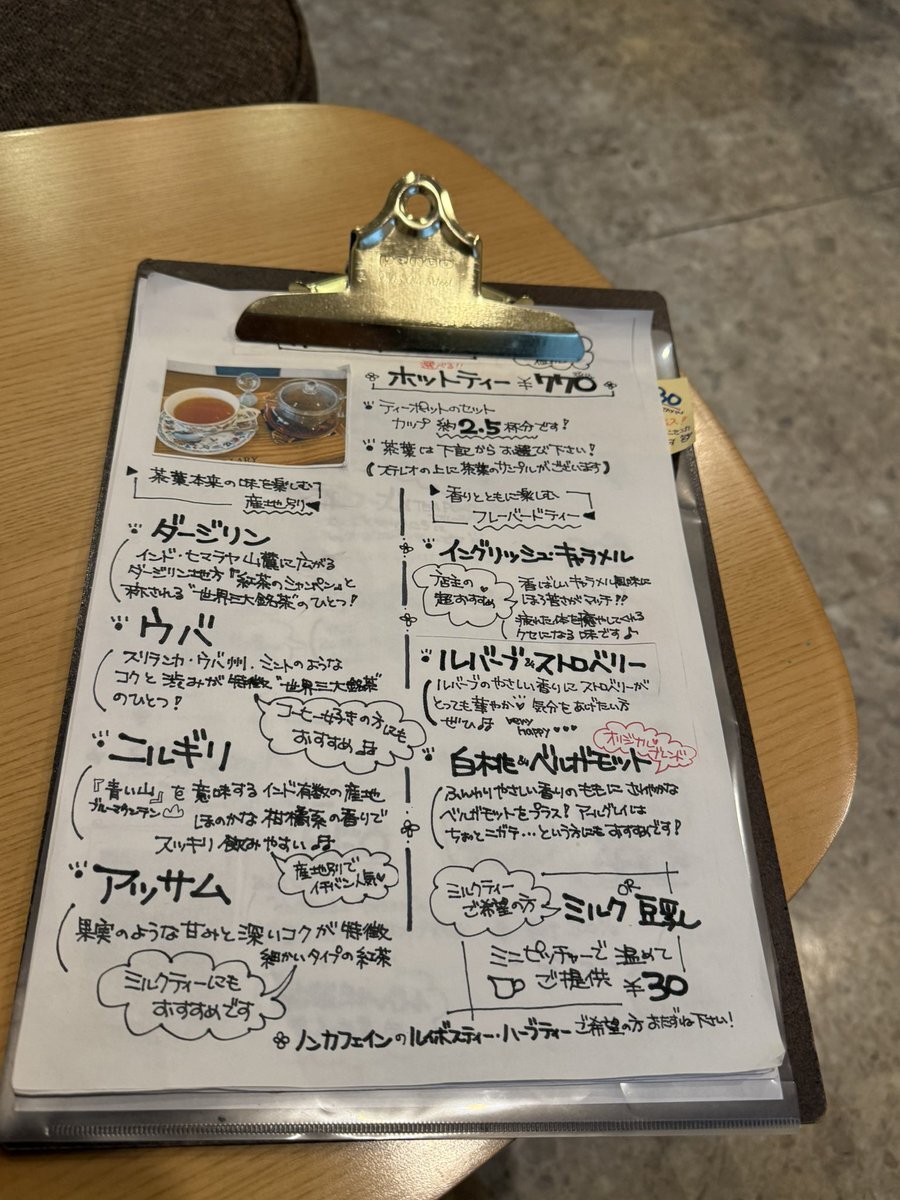 選べる!!
ホットティー ¥770
ティーポットのセット
カップ 約2.5杯分です!
茶葉は下記からお選び下さい!
(ステレオの上に茶葉のサンプルがございます)
茶葉本来の味を楽しむ
産地別
ダージリン
インド・ヒマラヤ山麓に広がる
ダージリン地方『紅茶のシャンペン』と
称される"世界三大銘茶"のひとつ!
ウバ
スリランカ・ウバ州。ミントのような
コクと渋みが特徴"世界三大銘茶"
のひとつ!
コーヒー好きの方にも
おすすめ♫
ニルギリ
『青い山』を意味するインド有数の産地
ブルーマウンテン
ほのかな柑橘系の香りで
スッキリ飲みやすい♫
産地別で
イチバン人気♥
アッサム
果実のような甘みと深いコクが特徴
細かいタイプの紅茶
ミルクティーにも
おすすめです
香りとともに楽しむ
フレーバードティー
イングリッシュ・キャラメル
店主の
超おすすめ
香ばしいキャラメル風味に
ほろ苦さがマッチ!?
疲れた体を癒やしてくれる
クセになる味です♪
ルバーブ&ストロベリー
ルバーブのやさしい香りにストロベリーが
とっても華やか♥ 気分をあげたい方
ぜひ♫ very happy♥♥♥
オリジナル
ブレンド
白桃&ベルガモット
ふんわりやさしい香りのももにさわやかな
ベルガモットをプラス!アールグレイは
ちょっとニガテ…という方にもおすすめです!
ミルクティー
ご希望の方
ミルク 豆乳
ミニピッチャーで温めて
ご提供 ¥30
ノンカフェインのルイボスティー・ハーブティー ご希望の方お尋ね下さい!
30